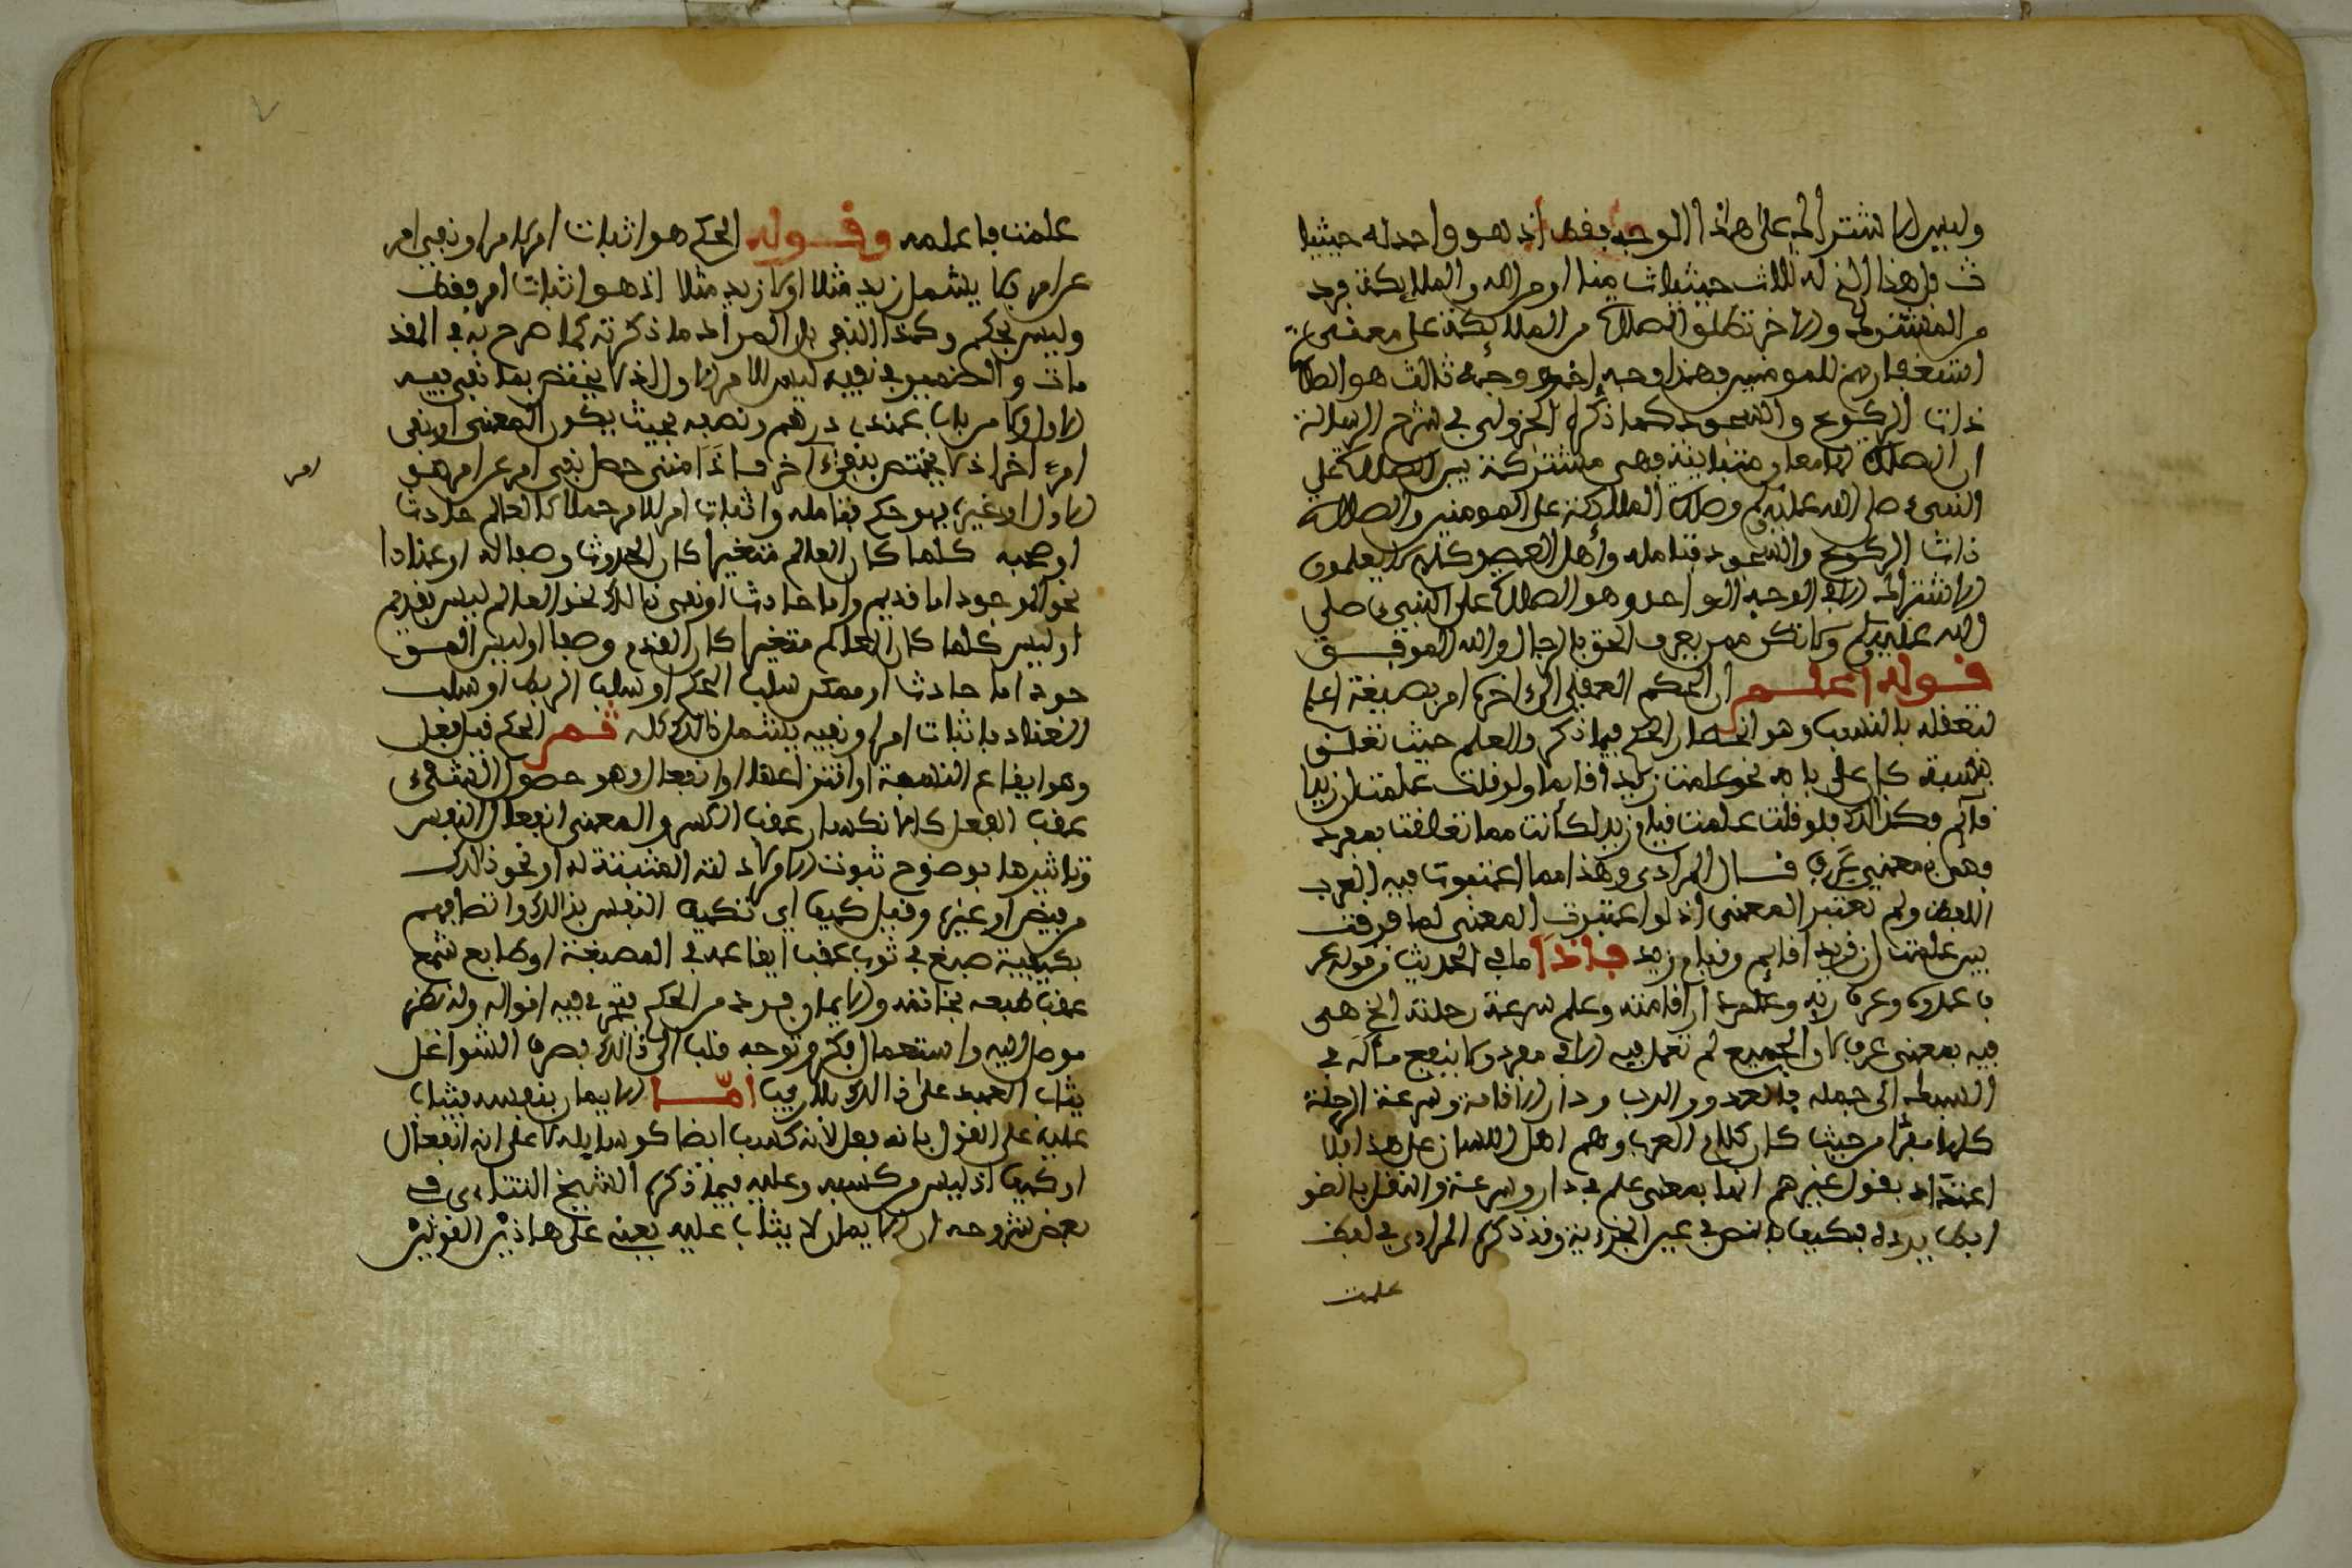 وليس الاشتراك على هذا الوجه فقط اذ هو واحد له حيثيا
ت فهذا الذي له ثلاث حيثيات منا او من الله والملايكة فرد
من المشترك والاخر تطلق الصلاة من الملايكة على معنى
استغفارهم للمومنين فهذا وجه اخر ووجه ثالث هو الصلاة
ذات الركوع والسجود كما ذكره الجزولي في شرح الرسالة
ان الصلاة لها معان متباينة فهي مشتركة بين الصلاة على
النبيء صلى الله عليه وسلم وصلاة الملايكة على المومنين والصلاة
ذات الركوع والسجود فتامله واهل العصر كلهم لا يعلمون
الاشتراك الا في الوجه الواحد وهو الصلاة على النبيء صلى
الله عليه وسلم ولا تكن ممن يعرف الحق بالرجال والله الموفق
قوله اعلم ان الحكم العقلي الى اخره امر بصيغة اعلم
لتعقله بالندب وهو انحصار الحكم فيما ذكر والعلم حيث تعلق
بنسبة كان على بابه نحو علمت زيدا قايما ولو قلت علمت ان زيدا
قايم فكذالك فلو قلت علمت قيام زيد لكانت مما تعلقت بمفرد
وهي بمعنى عرف قال المرادي وهذا مما اعتبرت فيه العرب
اللفظ ولم تعتبر المعنى اذ لو اعتبرت المعنى لما فرقت
بين علمت ان زيدا قايم وقيام زيد فاذا ما في الحديث من قوله عر
ف عدوه وعرف ربه وعلم دار اقامته وعلم سرعة رحلته الخ هي
فيه بمعنى عرف لان الجميع لم تعمل فيه الا في مفرد ولا ينفع مآله في
السبك الى جملة فالعدو والرب ودار الاقامة وسرعة الرحلة
كلها مفرد من حيث كان كلام العرب وهم اهل اللسان على هذا فلا
اعتداد بقول غيرهم انها بمعنى علم في دار وسرعة والنقل بالضو
ابط يرده فكيف بالنص في عين الجزءية وقد ذكره المرادي في لفظ
علمت
علمت فاعلمه وقوله الحكم هو اثبات امر لامر او نفي امر
عن امر لا يشمل زيد مثلا او لا زيد مثلا اذ هو اثبات امر فقط
وليس بحكم وكذا النفي بل المراد ما ذكرته كما صرح به في المقد
مات والضمير في نفيه ليس للامر الاول الذي يختص بما نفي فيه
الاول ولا من باب عندي درهم ونصفه بحيث يكون المعنى او نفي
امر اخر اذ لا يختص بنفي آخر فاذا متى حصل نفي امر عن امر هو
امر
الاول او غيره فهو حكم فتامله واثبات امر لامر حملا كالعالم حادث
او صحبه كلما كان العالم متغيرا كان الحدوث وصفا له او عنادا
نحو الموجود اما قديم واما حادث او نفي ذالك نحو العالم ليس بقديم
او ليس كلما كان العالم متغيرا كان القدم وصفا او ليس المو
جود اما حادث او ممكن سلب الحكم او سلب الربط او سلب
العناد فاثبات امر او نفيه يشمل ذالك كله ثم الحكم قيل فعل
وهو ايقاع النسبة او انتزاعها او انفعال وهو حصول الشيء
عقب الفعل كالانكسار عقب الكسر والمعنى انفعال النفس
وتاثيرها بوضوح ثبوت الامر لادلته المثبتة له او نحو ذالك
من فيض او غيره وقيل كيف اي تكييف النفس بذالك واتصافها
بكيفية صبغ في ثوب عقب ايقاعه في المصبغة او طابع شمع
عقب طبعه بخاتمه والايمان فرد من الحكم فتجري فيه اقواله والنظر
موصل اليه واستعمال فكر وتوجه قلب الى ذالك بصرف الشواغل
يثاب العبد على ذالك بلا ريب امّا الايمان بنفسه فيثاب
عليه على القول بانه فعل لانه كسب ايضا كوسايله لا على انه انفعال
او كيف اذ ليس من كسبه وعليه فيما ذكره الشيخ التتاءي في
بعض شروحه ان الايمان لا يثاب عليه يعني على هاذين القولين